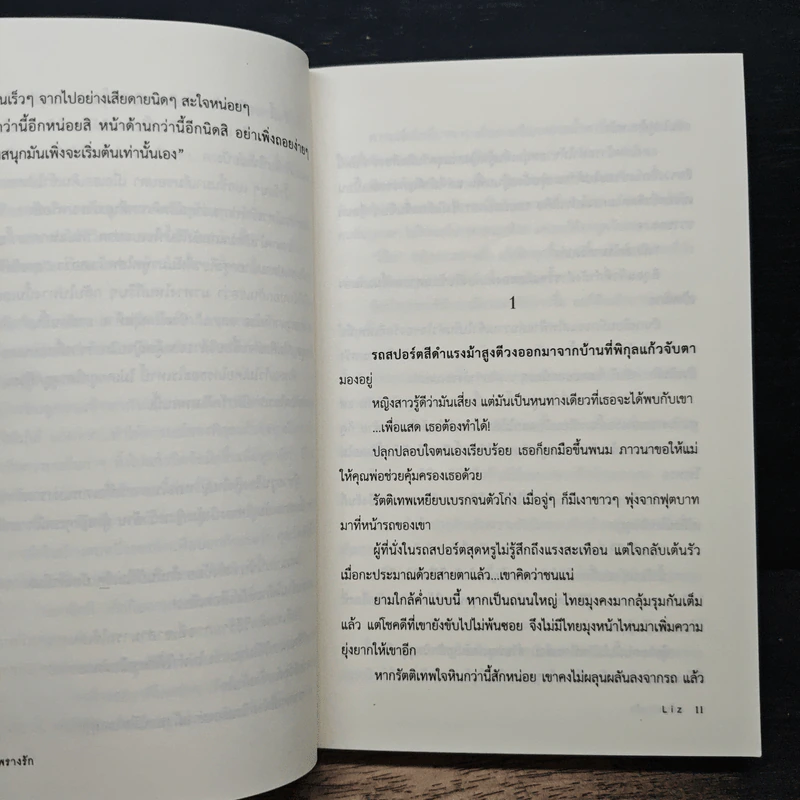 นเร็วๆ จากไปอย่างเสียดายนิดๆ สะใจหน่อยๆ
กว่านี้อีกหน่อยสิ หน้าด้านกว่านี้อีกนิดสิ อย่าเพิ่งถอยง่ายๆ
สนุกมันเพิ่งจะเริ่มต้นเท่านั้นเอง”
พรางรัก
1
รถสปอร์ตสีดำแรงม้าสูงตีวงออกมาจากบ้านที่พิกุลแก้วจับตา
มองอยู่
หญิงสาวรู้ดีว่ามันเสี่ยง แต่มันเป็นหนทางเดียวที่เธอจะได้พบกับเขา
...เพื่อแสด เธอต้องทำได้!
ปลุกปลอบใจตนเองเรียบร้อย เธอก็ยกมือขึ้นพนม ภาวนาขอให้แม่
ให้คุณพ่อช่วยคุ้มครองเธอด้วย
รัตติเทพเหยียบเบรกจนตัวโก่ง เมื่อจู่ๆ ก็มีเงาขาวๆ พุ่งจากฟุตบาท
มาที่หน้ารถของเขา
ผู้ที่นั่งในรถสปอร์ตสุดหรูไม่รู้สึกถึงแรงสะเทือน แต่ใจกลับเต้นรัว
เมื่อกะประมาณด้วยสายตาแล้ว...เขาคิดว่าชนแน่
ยามใกล้ค่ำแบบนี้ หากเป็นถนนใหญ่ ไทยมุงคงมากลุ้มรุมกันเต็ม
แล้ว แต่โชคดีที่เขายังขับไปไม่พ้นซอย จึงไม่มีไทยมุงหน้าไหนมาเพิ่มความ
ยุ่งยากให้เขาอีก
หากรัตติเทพใจหินกว่านี้สักหน่อย เขาคงไม่ผลุนผลันลงจากรถ แล้ว
Liz 11